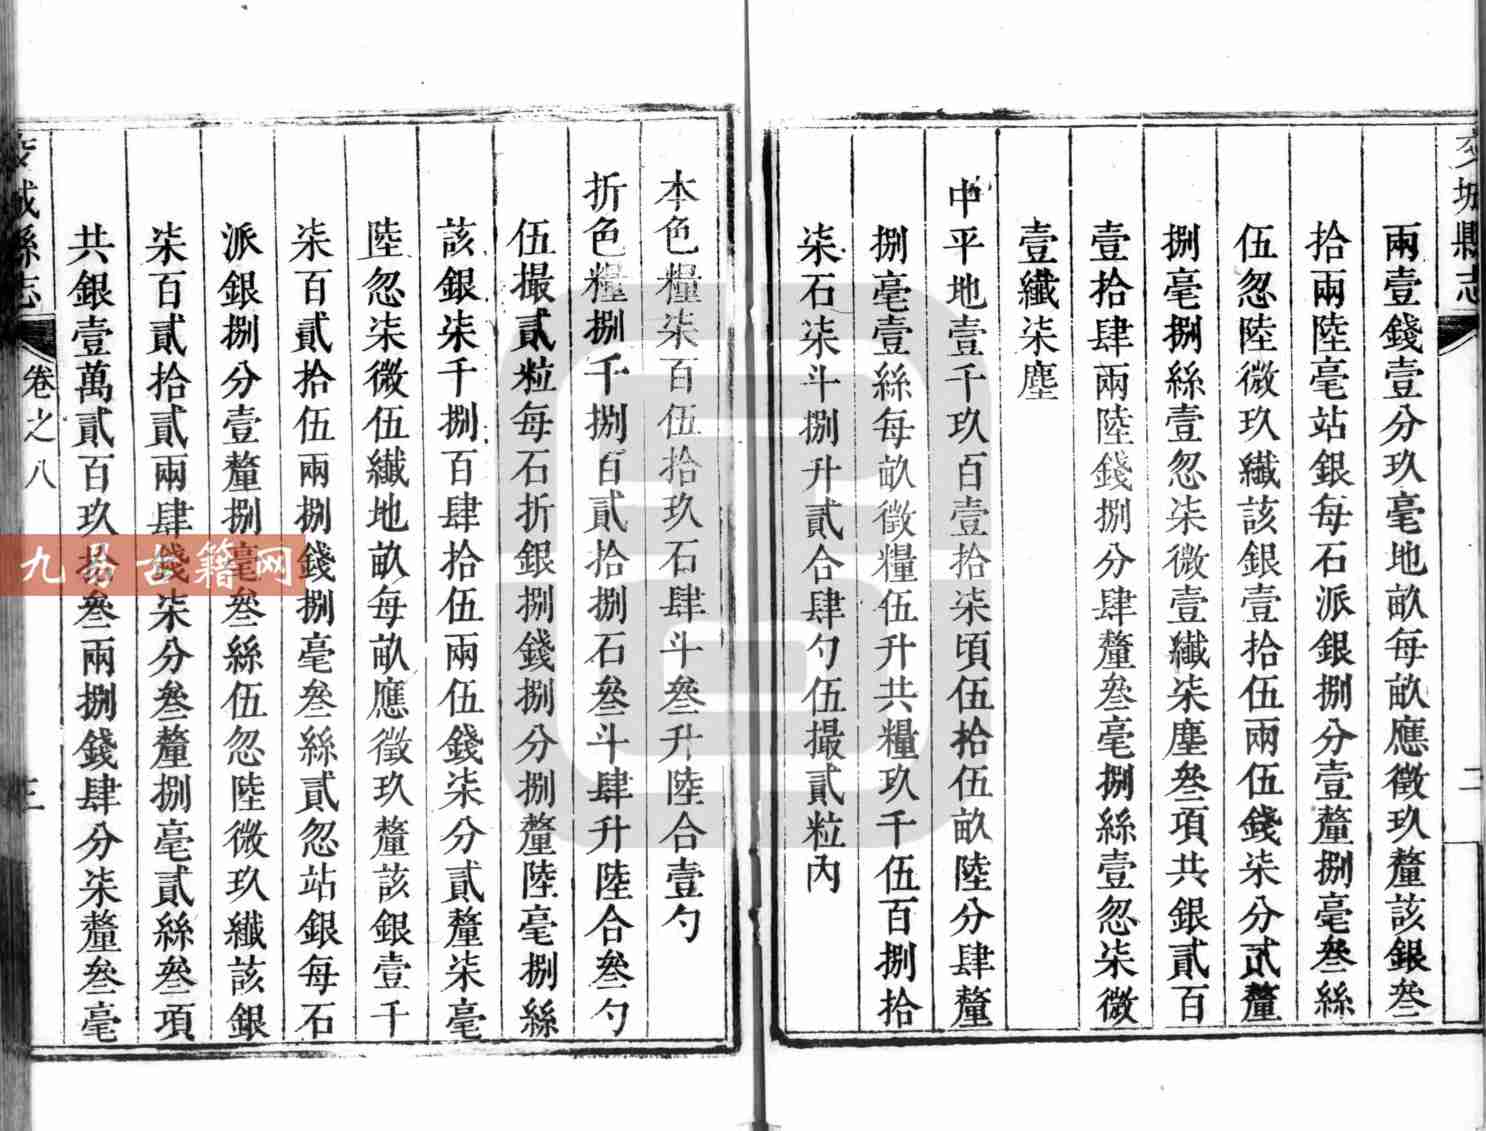 交城縣志
二
兩壹錢壹分玖毫地畝每畝應徵玖釐該銀叁
拾兩陸毫站銀每石派銀捌分壹釐捌毫叁絲
伍忽陸微玖纖該銀壹拾伍兩伍錢柒分貳釐
捌毫捌絲壹忽柒微壹纖柒塵叁項共銀貳百
壹拾肆兩陸錢捌分肆釐叁毫捌絲壹忽柒微
壹纖柒塵
中平地壹千玖百壹拾柒頃伍拾伍畝陸分肆釐
捌毫壹絲每畝徵糧伍升共糧玖千伍百捌拾
柒石柒斗捌升貳合肆勺伍撮貳粒內
本色糧柒百伍拾玖石肆斗叁升陸合壹勺
折色糧捌千捌百貳拾捌石叁斗肆升陸合叁勺
伍撮貳粒每石折銀捌錢捌分捌釐陸毫捌絲
該銀柒千捌百肆拾伍兩伍錢柒分貳釐柒毫
陸忽柒微伍纖地畝每畝應徵玖釐該銀壹千
柒百貳拾伍兩捌錢捌毫叁絲貳忽站銀每石
派銀捌分壹釐捌毫叁絲伍忽陸微玖纖該銀
柒百貳拾貳兩肆錢柒分叁釐捌毫貳絲叁項
共銀壹萬貳百玖拾叁兩捌錢肆分柒釐叁毫
交城縣志
卷之八
三
九易古籍网